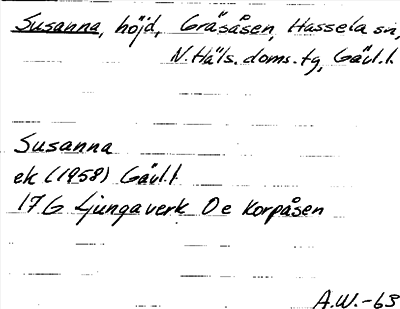 Susanna, höjd, Gräsåsen, Hassela sn,
N. Häls. doms. tg, Gävl. l.
Susanna
ek (1958) Gävl. l
17G Ljungaverk 0e Korpåsen
A.W.-63